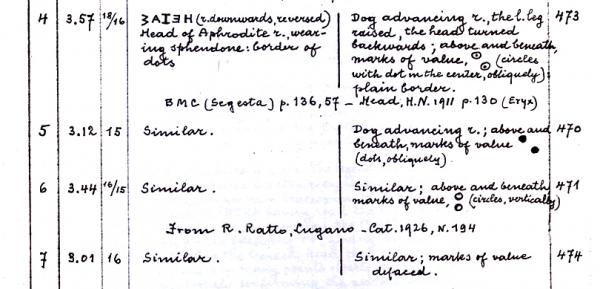 4 3.57 18/16 ƸAIƎH (r. downwards, reversed) Dog advancing r., the l. leg 473
Head of Aphrodite r., wear- raised, the head turned
ing sphendone: border of backwards; above and beneath,
dots marks of value, ⊙ ⊙ (circles
with dot in the center, obliquely);
plain border.
BMC (Segesta) p. 136, 57 – Head, H.N. 1911 p. 130 (Eryx)
5 3.12 15 Similar. Dog advancing r.; above and 470
beneath, marks of value ● ●
(dots, obliquely).
6 3.44 16/15 Similar. Similar; above and beneath 471
marks of value, ○ ○ (circles, vertically)
From R. Ratto, Lugano – Cat. 1926, N. 194
7 3.01 16 Similar. Similar; marks of value 474
defaced.